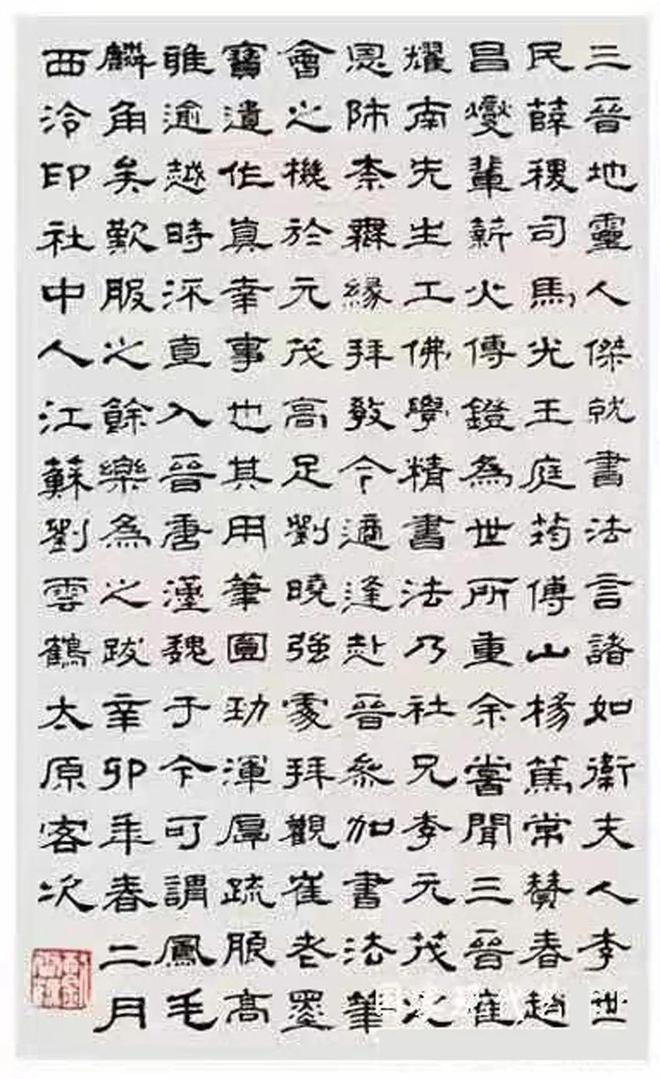 三晉地靈人傑就書法言諸如衛夫人李世
民薛稷司馬光王庭筠傅山楊篤常贊春趙
昌燮輩薪火傳鐙為世所重余嘗聞三晉崔
耀南先生工佛學精書法乃社兄李元茂之
恩師柰無緣拜教今適逢赴晉參加書法筆
會之機於元茂高足劉曉強處拜觀崔老墨
寶遺作真幸事也其用筆圓勁渾厚疏朖高
雅逾越時流直入晉唐漢魏于今可謂鳳毛
麟角矣歎服之餘樂為之跋辛卯年春二月
西泠印社中人江蘇劉雲鶴太原客次